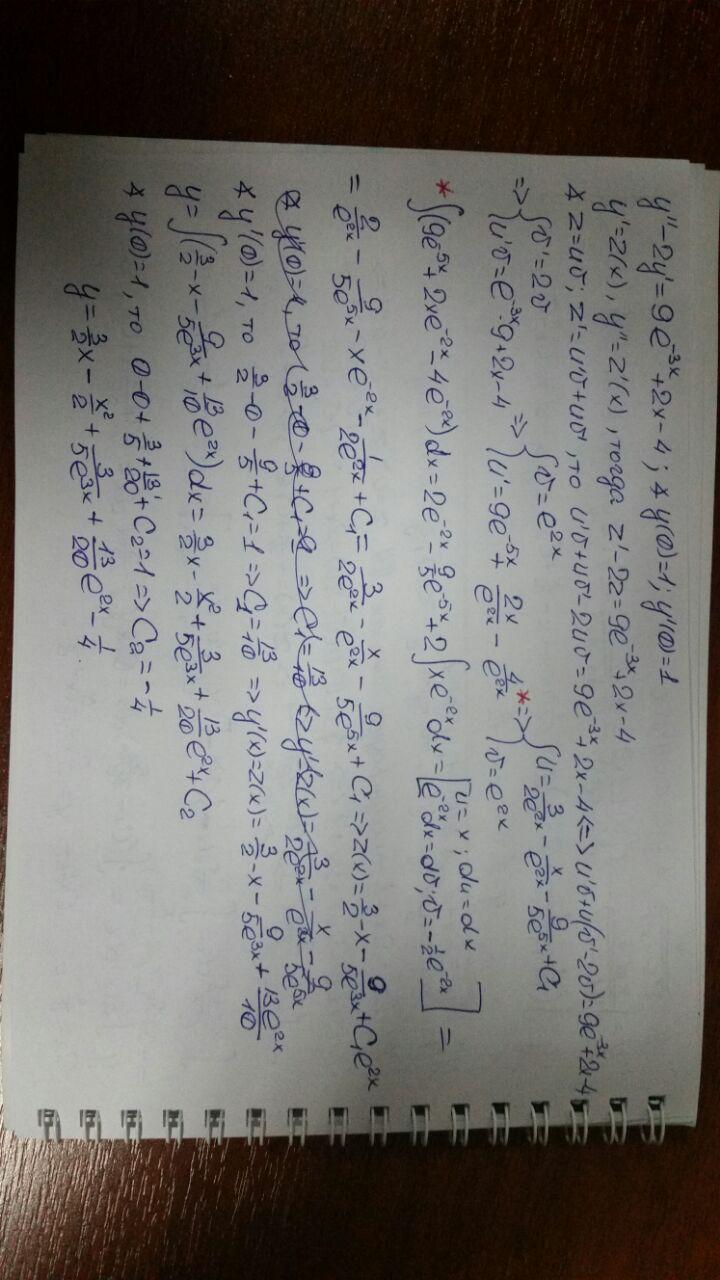 y''-2y'=9e^{-3x}+2x-4; ∢ y(0)=1; y'(0)=1
y'=z(x), y''=z'(x), тогда z'-2z=9e^{-3x}+2x-4
∢ z=uv, z'=u'v+uv', то u'v+uv'-2uv=9e^{-3x}+2x-4<=>u'v+u(v'-2v)=9e^{-3x}+2x-4
=> { v'=2v ; u'v=e^{-3x}·9+2x-4 => { v=e^{2x} ; u'=9e^{-5x}+\frac{2x}{e^{2x}}-\frac{4}{e^{2x}} *=> { u=\frac{3}{2e^{2x}}-\frac{x}{e^{2x}}-\frac{9}{5e^{5x}}+C_1 ; v=e^{2x}
* ∫(9e^{-5x}+2xe^{-2x}-4e^{-2x})dx=2e^{-2x}-\frac{9}{5}e^{-5x}+2∫xe^{-2x}dx=[u=x; du=dx ; e^{-2x}dx=dv; v=-\frac{1}{2}e^{-2x}]=
=\frac{2}{e^{2x}}-\frac{9}{5e^{5x}}-xe^{-2x}-\frac{1}{2e^{2x}}+C_1=\frac{3}{2e^{2x}}-\frac{x}{e^{2x}}-\frac{9}{5e^{5x}}+C_1=>z(x)=\frac{3}{2}-x-\frac{9}{5e^{3x}}+C_1e^{2x}
∢ y'(0)=1, то \frac{3}{2}-0-\frac{9}{5}+C_1=1=>C_1=\frac{13}{10} =>y'(x)=z(x)=\frac{3}{2}-x-\frac{9}{5e^{3x}}+\frac{13e^{2x}}{10}
y=∫(\frac{3}{2}-x-\frac{9}{5e^{3x}}+\frac{13}{10}e^{2x})dx=\frac{3}{2}x-\frac{x^2}{2}+\frac{3}{5e^{3x}}+\frac{13}{20}e^{2x}+C_2
∢ y(0)=1, то 0-0+\frac{3}{5}+\frac{13}{20}+C_2=1=>C_2=-\frac{1}{4}
y=\frac{3}{2}x-\frac{x^2}{2}+\frac{3}{5e^{3x}}+\frac{13}{20}e^{2x}-\frac{1}{4}